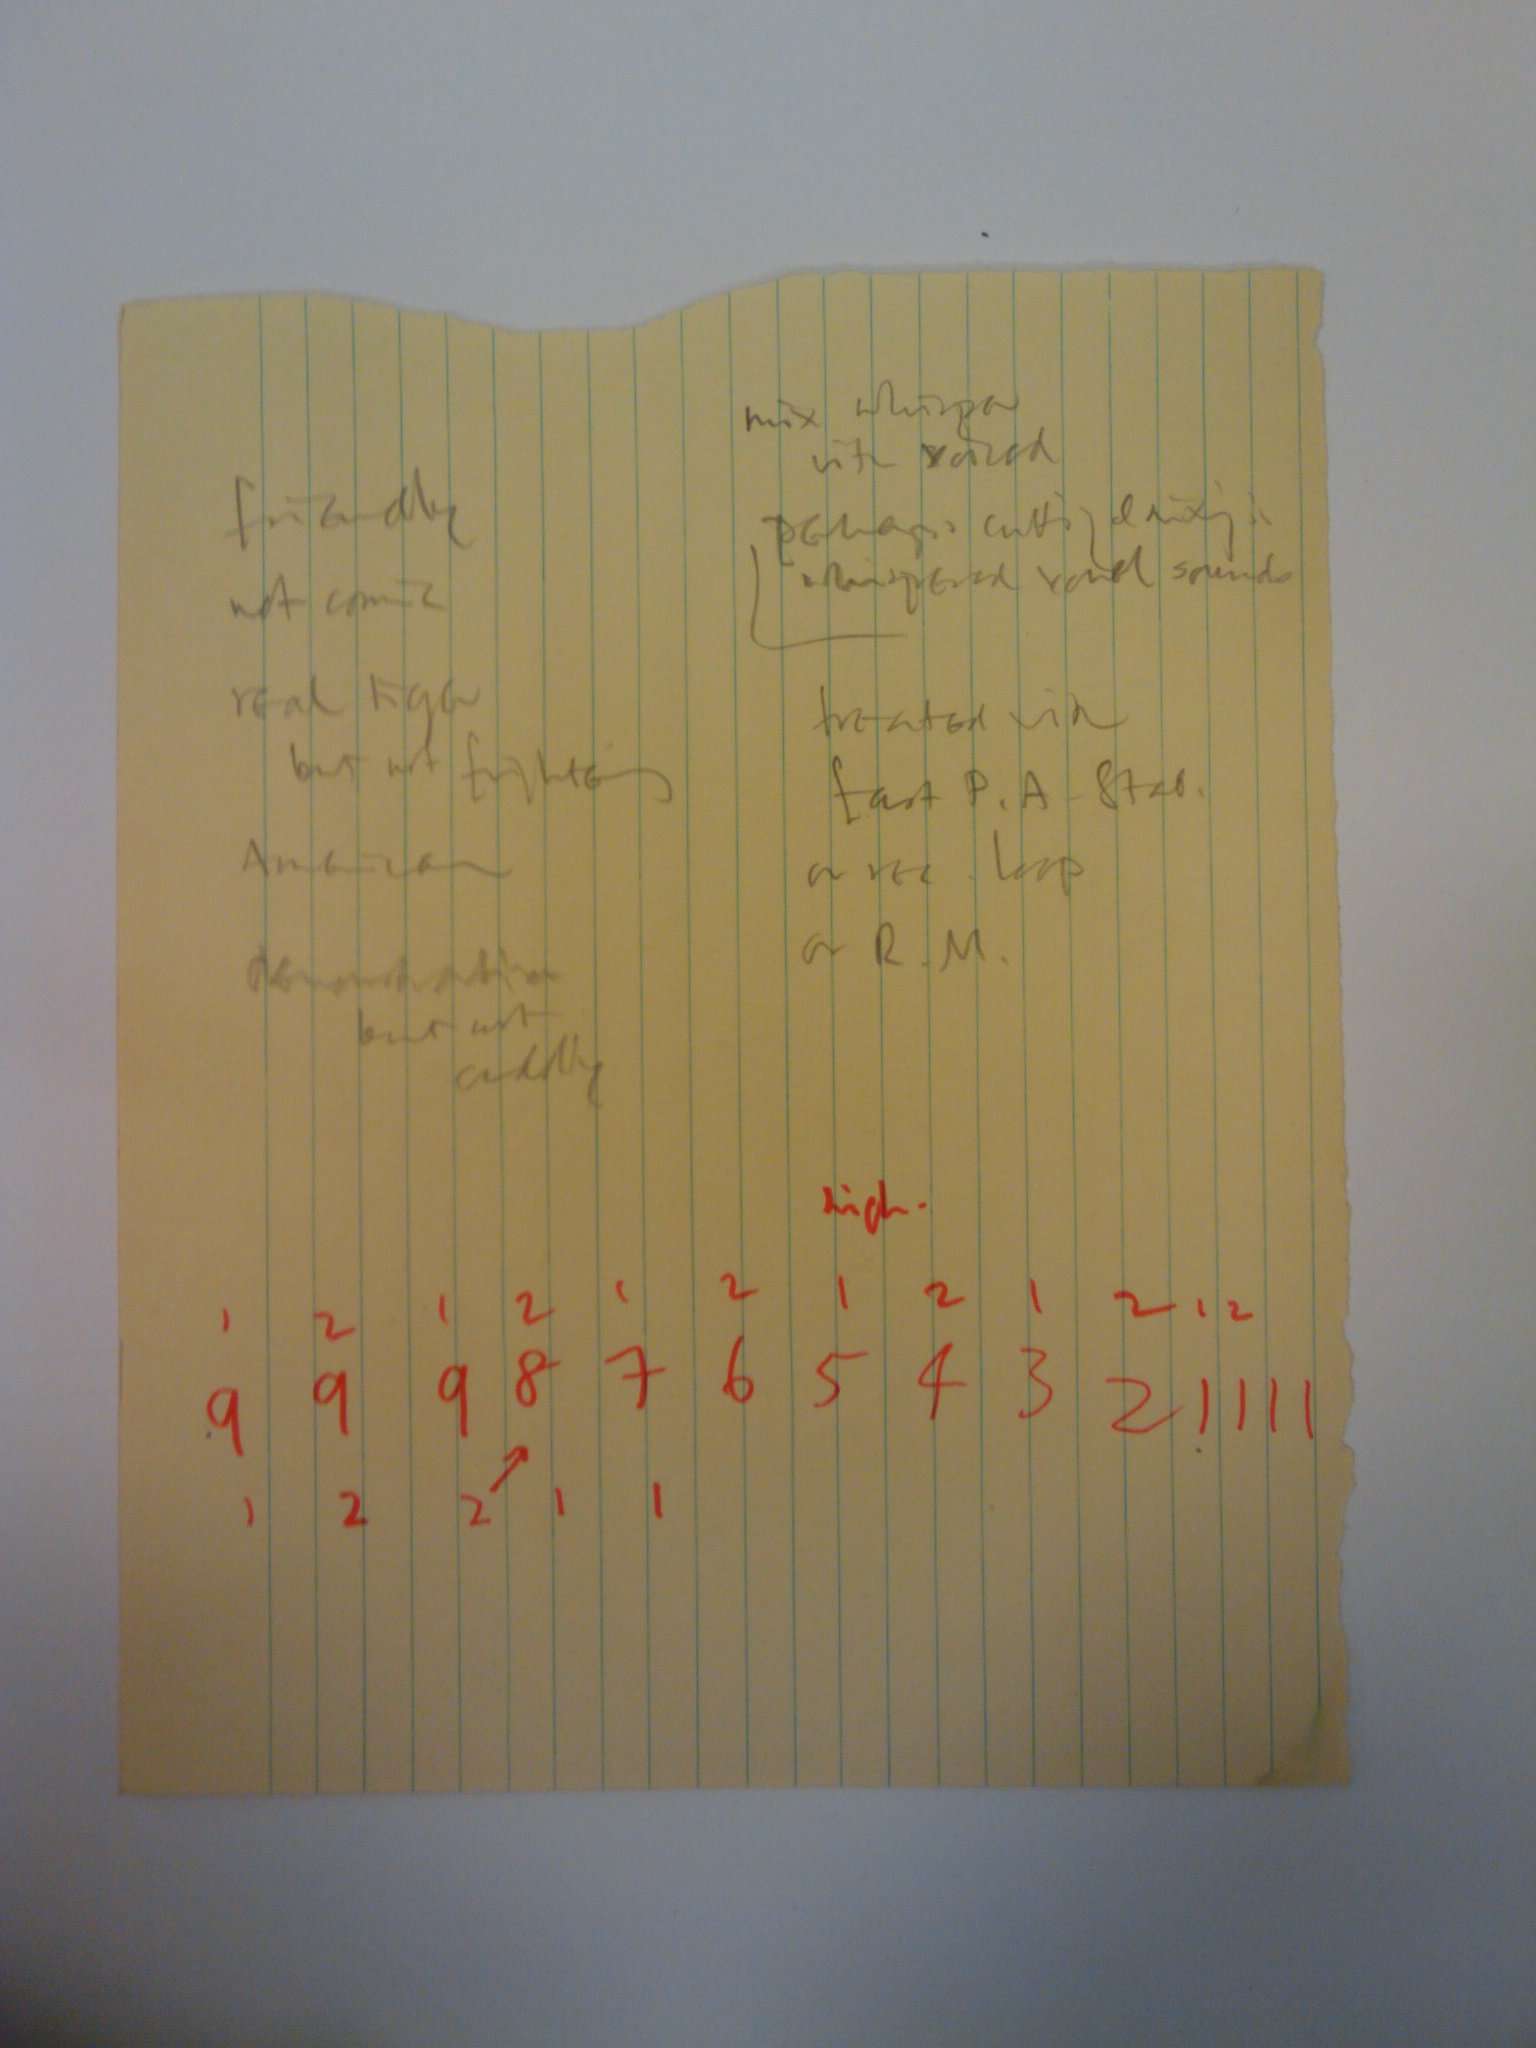 friendly
not comic
real tiger
but not frightening
American
demonstrative
but not
cuddly
mix whisper
with voiced
perhaps cutting & mixing in
whispered vowel sounds
treated with
fast P.A. Stab.
or rec. loop
or R.M.
high.
1 2 1 2 1 2 1 2 1 2 1 2
9 9 9 8 7 6 5 4 3 2 1 1 1 1
1 2 2 1 1